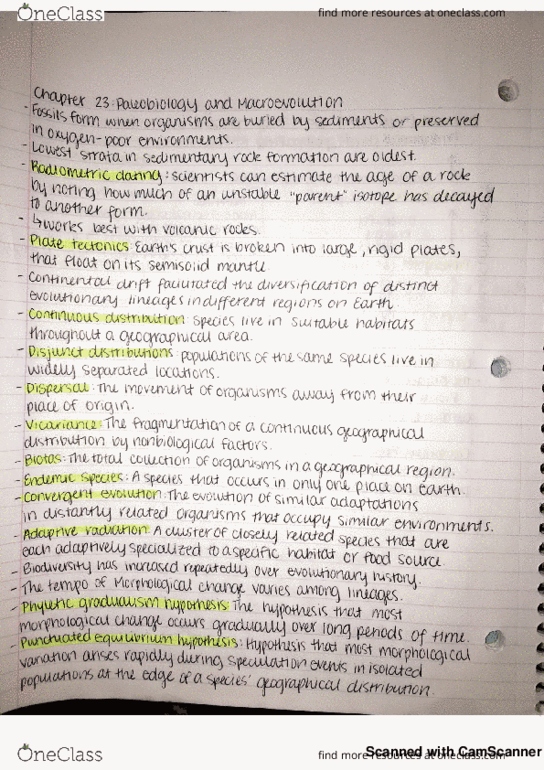 OneClass
find more resources at oneclass.com
Chapter 23: Paleobiology and Macroevolution
- Fossils form when organisms are buried by sediments or preserved
in oxygen-poor environments.
- Lowest strata in sedimentary rock formation are oldest.
- Radiometric dating: scientists can estimate the age of a rock
by noting how much of an unstable "parent" isotope has decayed
to another form.
- ↳works best with volcanic rocks.
- Plate tectonics: Earth's crust is broken into large, rigid plates,
that float on its semisolid mantle
- Continental drift faciliated the diversification of distinct
evolutionary lineages in different regions on Earth
- Continuous distribution: species live in suitable habitats
throughout a geographical area.
- Disjunct distributions: populations of the same species live in
widely separated locations.
- Dispersal: The movement of organisms away from their
place of origin.
- Vicariance: The fragmentation of a continuous geographical
distribution by nonbiological factors.
- Biotas: The total collection of organisms in a geographical region.
- Endemic species: A species that occurs in only one place on Earth.
- Convergent evolution: The evolution of similar adaptations
in distantly related organisms that occupy similar environments.
- Adaptive radiation: A cluster of closely related species that are
each adaptively specialized to a specific habitat or food source
- Biodiversity has increased repeatedly over evolutionary history.
- The tempo of Morphological change varies among lineages.
- Phyletic gradualism hypothesis: The hypothesis that most
morphological change occurs gradually over long periods of time.
- Punctuated equilibrium hypothesis: Hypothesis that most morphological
variation arises rapidly during speculation events in isolated
populations at the edge of a species' geographical distribution.
OneClass
find more resources at oneclass.com
Scanned with CamScanner